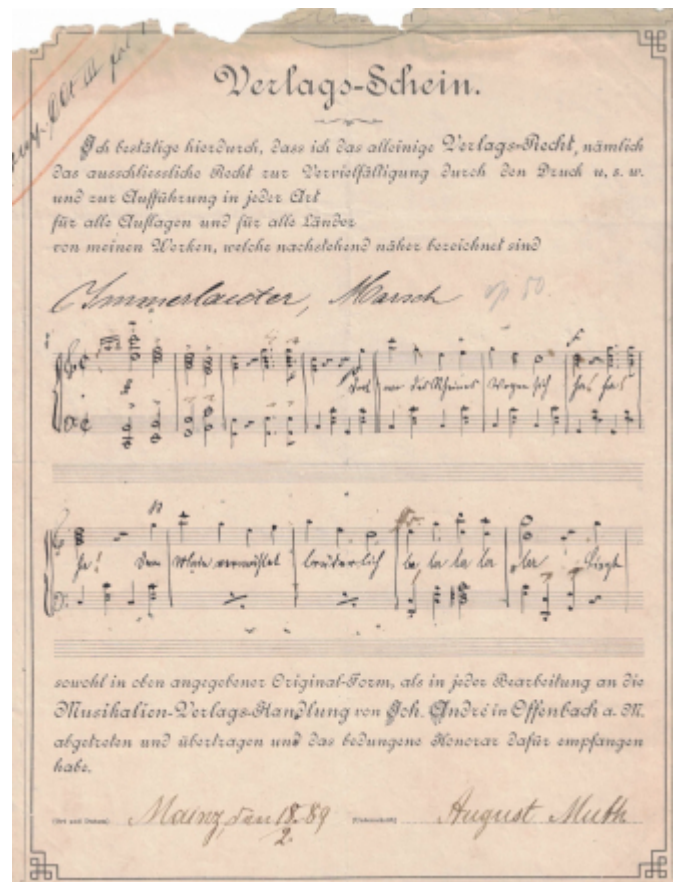 Verlags-Schein.
Ich bestätige hierdurch, dass ich das alleinige Verlags-Recht, nämlich
das ausschliessliche Recht zur Vervielfältigung durch den Druck u. s. w.
und zur Aufführung in jeder Art
für alle Auflagen und für alle Länder
von meinen Werken, welche nachstehend näher bezeichnet sind
Immerlauter, Marsch op 50.
Dort wo des Rheines Wogen sich ha ha
ha! Dem Main vermählet brüderlich la, la la la la liegt
sowohl in oben angegebener Original-Form, als in jeder Bearbeitung an die
Musikalien-Verlags-Handlung von Joh. André in Offenbach a. M.
abgetreten und übertragen und das bedungene Honorar dafür empfangen
habe.
(Ort und Datum) Mainz, den 18. 89 (Unterschrift) August Muth
2.